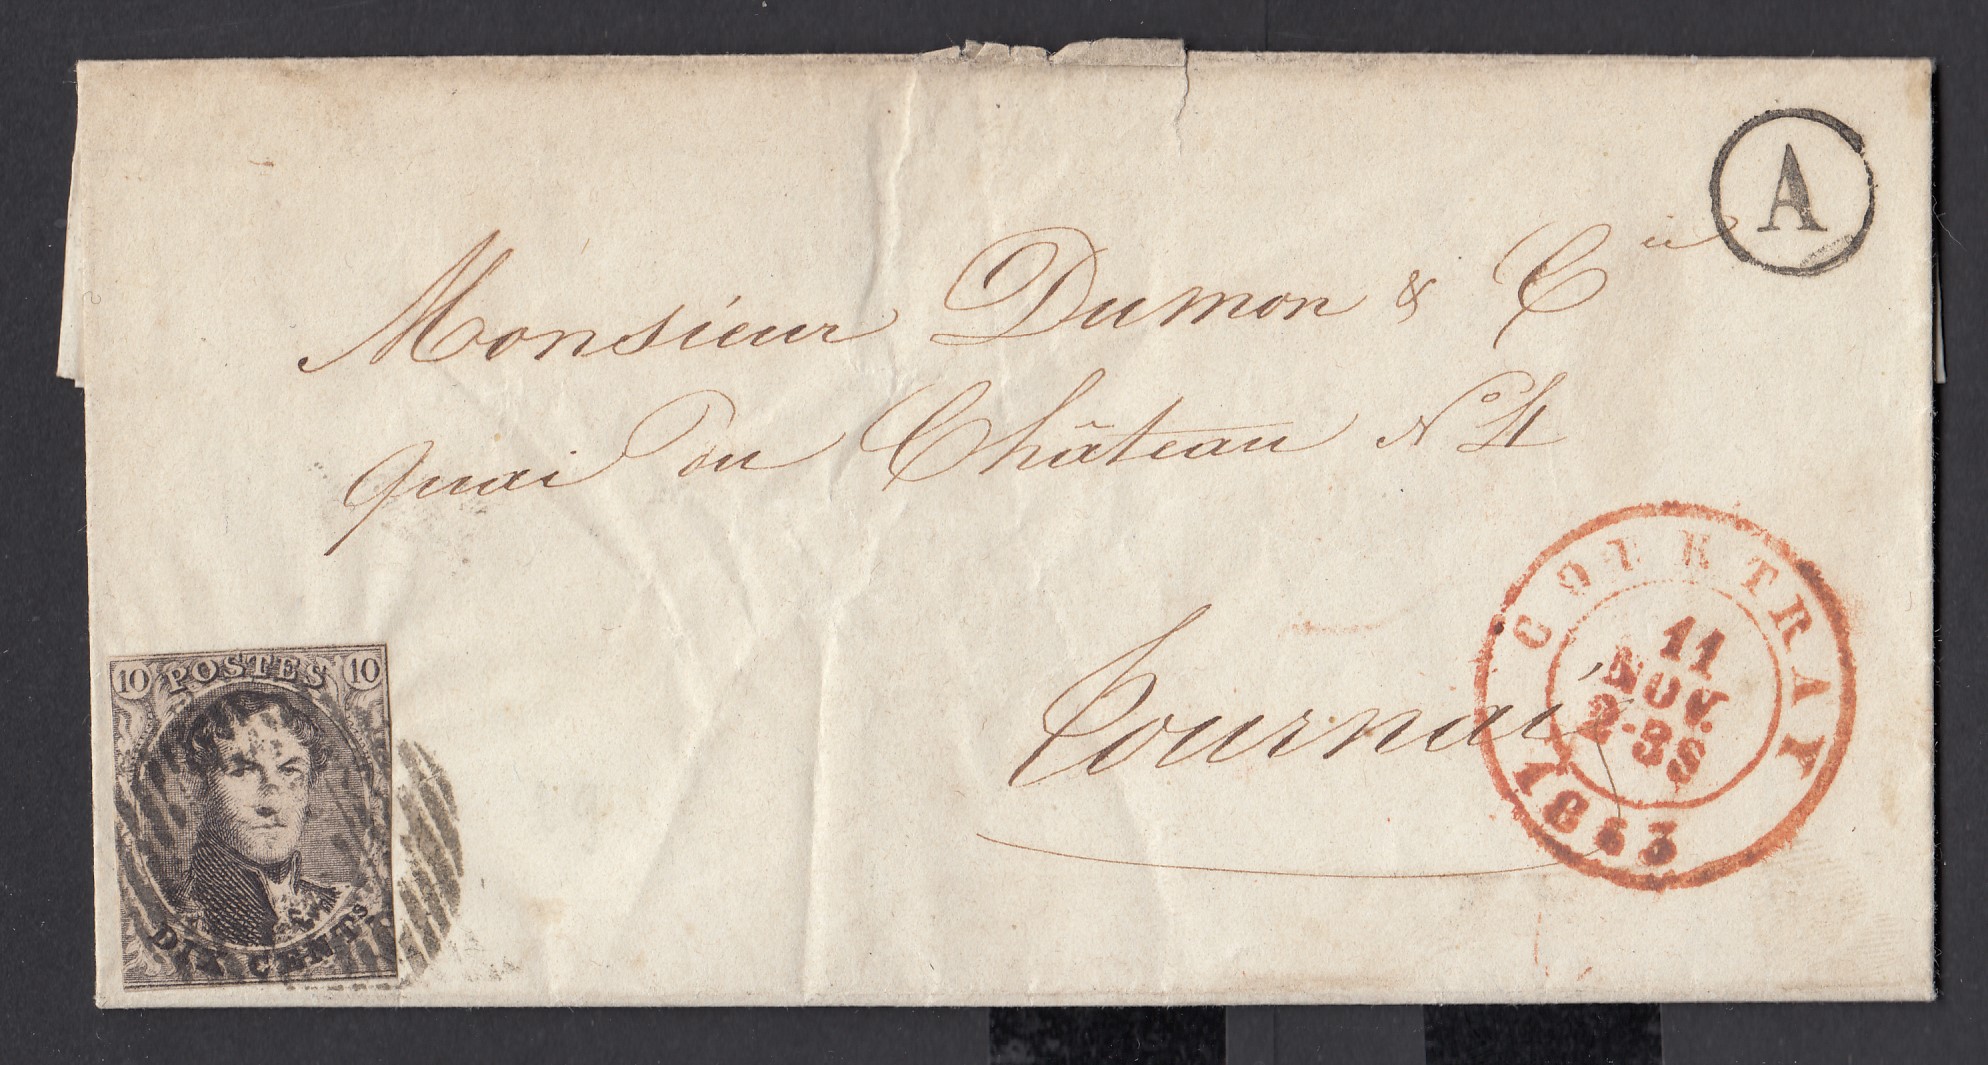 A
Monsieur Dumon & Cie
Quai du Château No 4
Tournai
COURTRAY
11
NOV.
2-3S
1853
10 POSTES 10
DIX CENTS